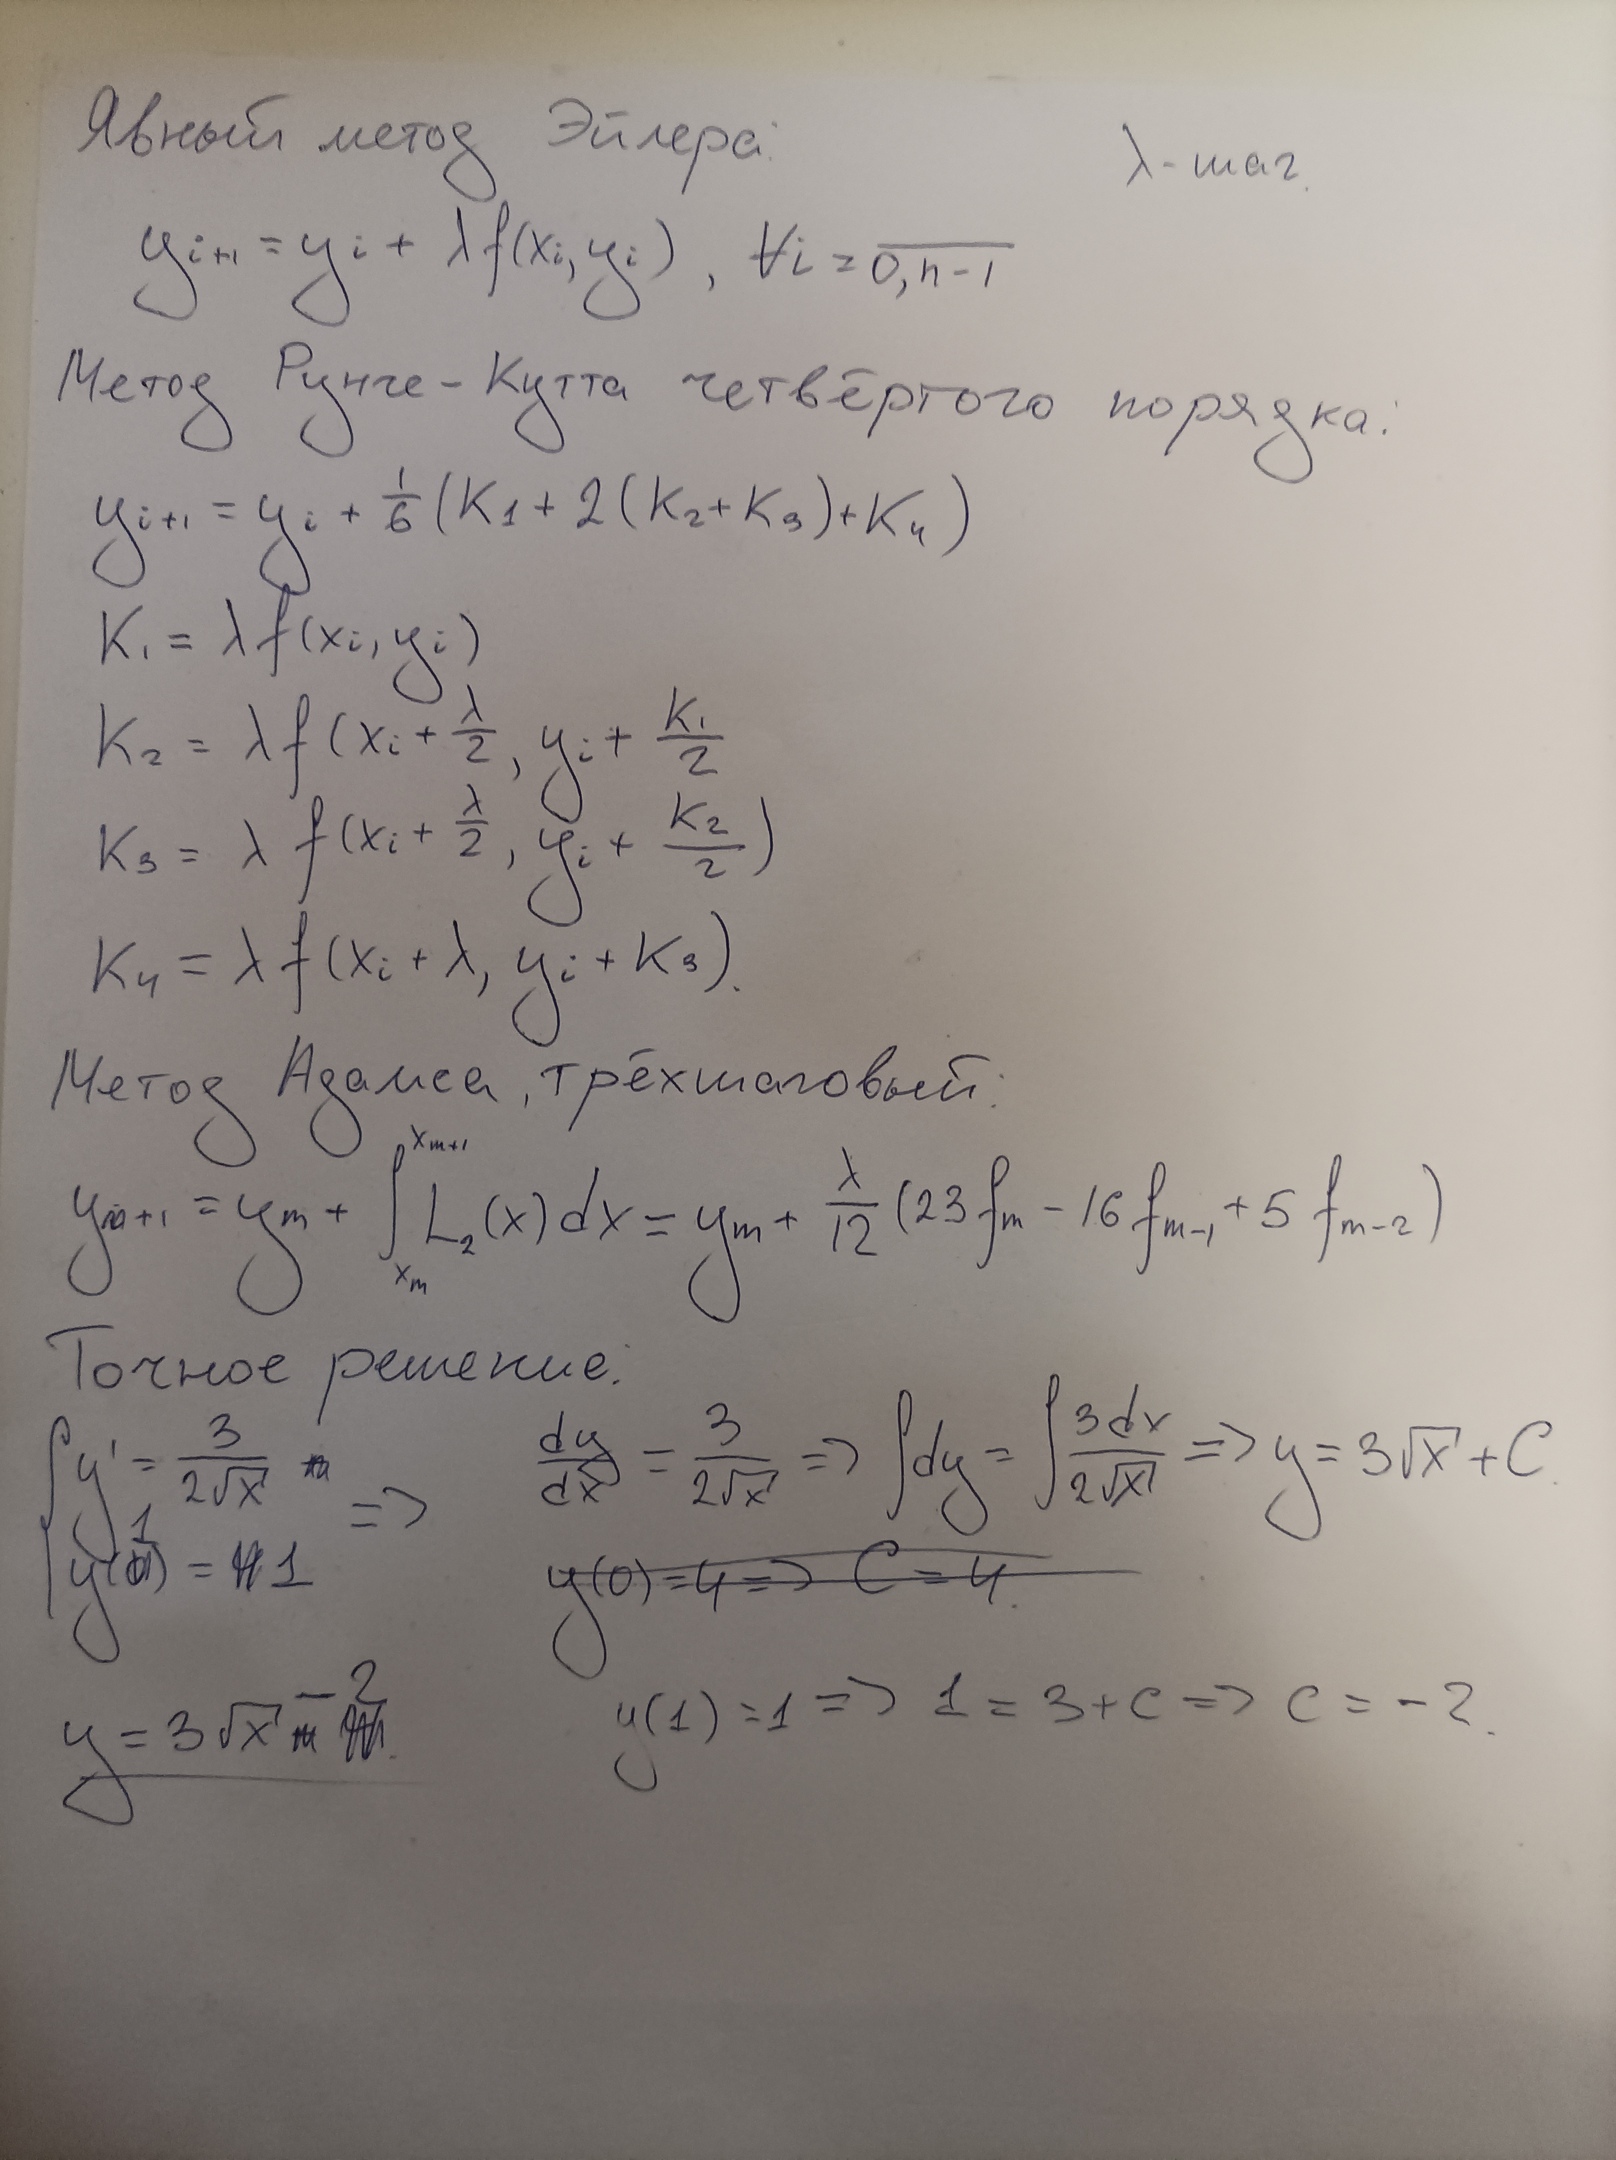 Явный метод Эйлера:
λ - шаг.
y_{i+1} = y_i + λ f(x_i, y_i), ∀i = \overline{0, n-1}
Метод Рунге-Кутта четвёртого порядка:
y_{i+1} = y_i + \frac{1}{6} (K_1 + 2(K_2 + K_3) + K_4)
K_1 = λ f(x_i, y_i)
K_2 = λ f(x_i + \frac{λ}{2}, y_i + \frac{K_1}{2}
K_3 = λ f(x_i + \frac{λ}{2}, y_i + \frac{K_2}{2})
K_4 = λ f(x_i + λ, y_i + K_3).
Метод Адамса, трёхшаговый:
y_{m+1} = y_m + \int_{x_m}^{x_{m+1}} L_2(x) dx = y_m + \frac{λ}{12} (23 f_m - 16 f_{m-1} + 5 f_{m-2})
Точное решение:
y' = \frac{3}{2\sqrt{x}} => \frac{dy}{dx} = \frac{3}{2\sqrt{x}} => ∫dy = ∫\frac{3dx}{2\sqrt{x}} => y = 3\sqrt{x} + C.
y(1) = 1
y(0) = 4 => C = 4.
y = 3\sqrt{x} - 2
y(1) = 1 => 1 = 3 + C => C = -2.